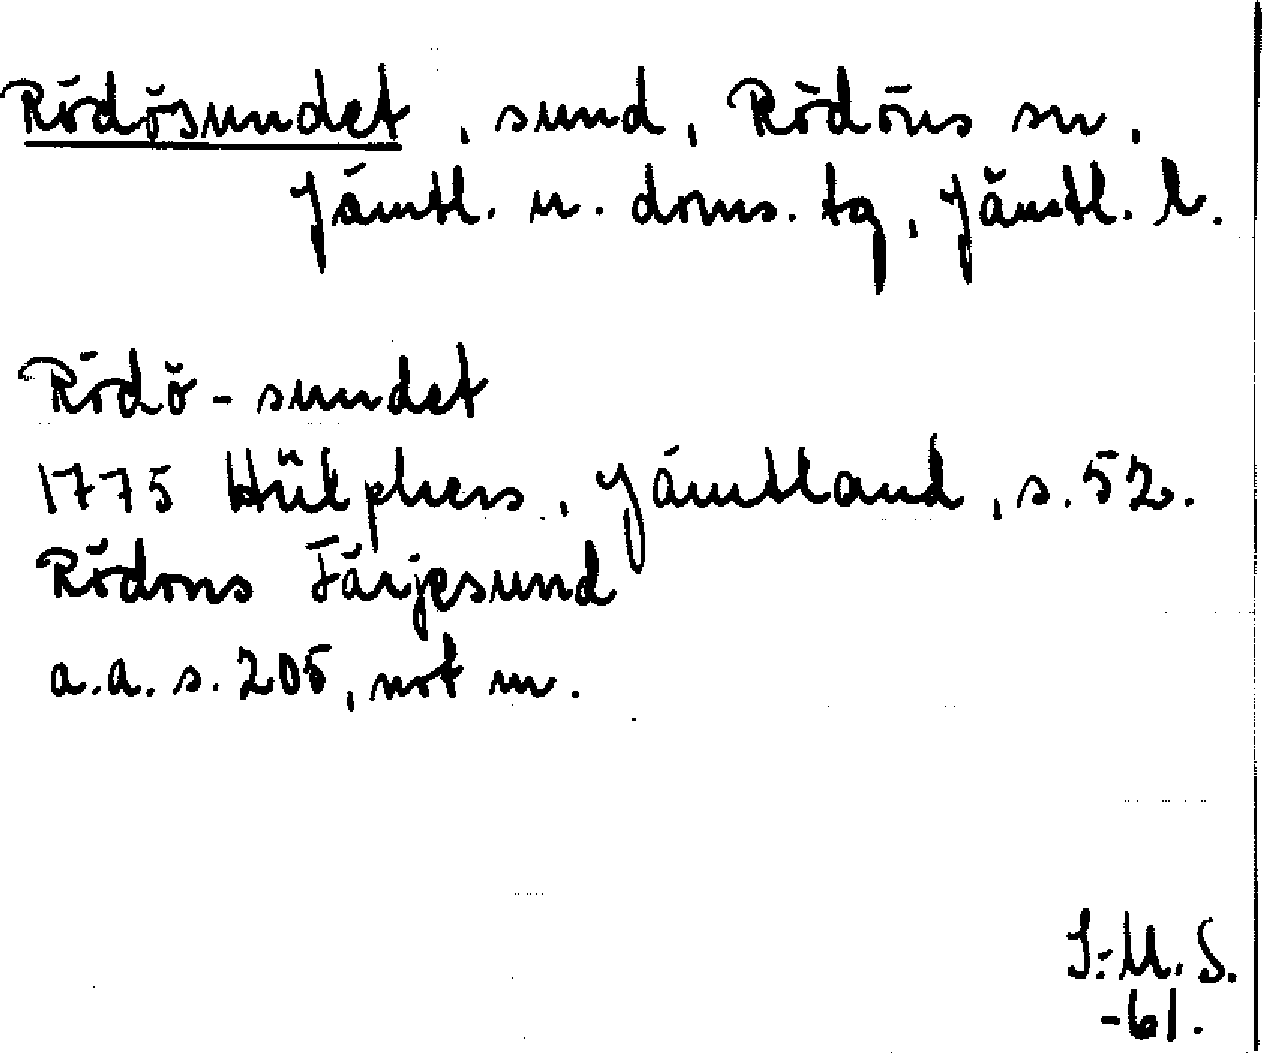 Rödösundet, sund, Rödöns sn.
Jämtl. n. doms. tg, Jämtl. l.
Rödö-sundet
1775 Hülphers, Jämtland, s. 52.
Rödöns Färjesund
a.a. s. 205, not m.
I.-M. S.
-61.